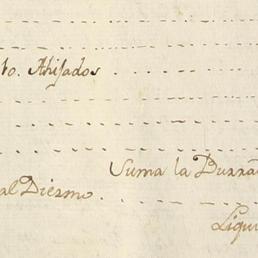 to. Ahijados
Suma la Durra
al Diezmo
Liqui